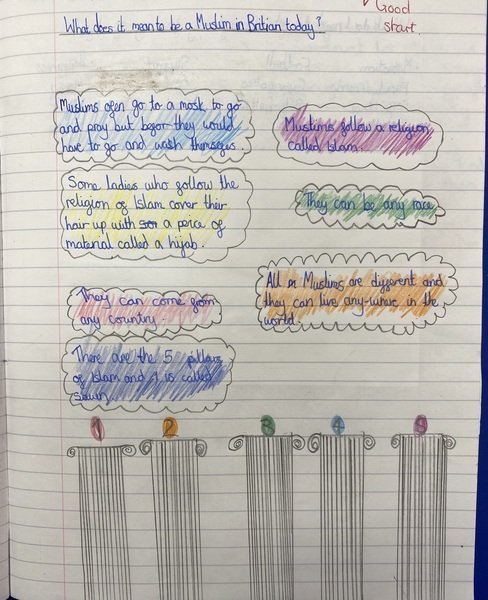 Good
start.
What does it mean to be a Muslim in Britian today?
Muslims ofen go to a mosk to go
and pray but befor they would
have to go and wash themseges.
Muslims follow a religion
called Islam.
Some ladies who follow the
religion of Islam cover their
hair up with a peice of
material called a hijab.
They can be any race
All Muslims are different and
they can live any-where in the
world
They can come from
any country
There are the 5 pillars
of Islam and 1 is called
sawm
1 2 3 4 5